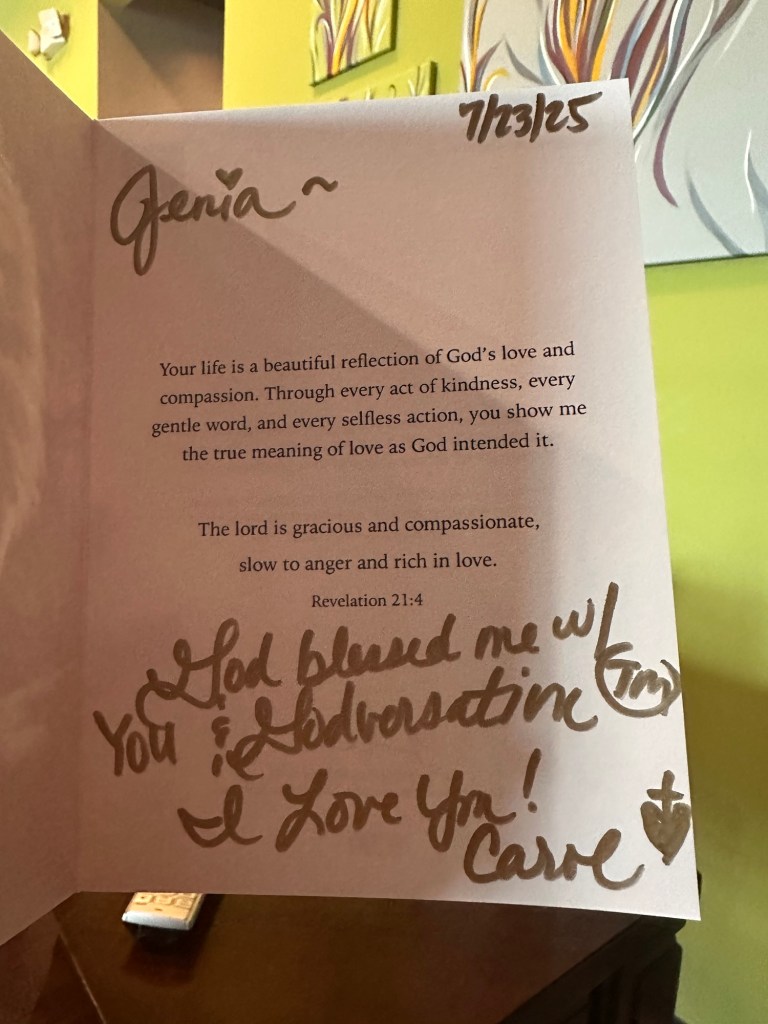 7/23/25
Genia ~
Your life is a beautiful reflection of God's love and
compassion. Through every act of kindness, every
gentle word, and every selfless action, you show me
the true meaning of love as God intended it.
The lord is gracious and compassionate,
slow to anger and rich in love.
Revelation 21:4
God blessed me w/
You & Godversation (TM)
I Love You!
Carol